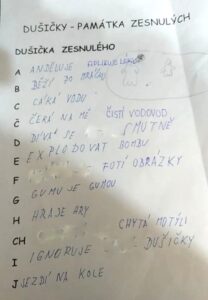 DUŠIČKY - PAMÁTKA ZESNULÝCH
DUŠIČKA ZESNULÉHO
A ANDĚLUJE
B BĚŽÍ DO MRÁČKU
C CÁKÁ VODU
Č ČEKÁ NA MĚ ČISTÍ VODOVOD
D DÍVÁ SE SMUTNĚ
E EXPLODOVAT BOMBU
F FOTÍ OBRÁZKY
G GUMUJE GUMOU
H HRAJE HRY
CH CHYTÁ MOTÝLI
I IGNORUJE DUŠIČKY
J JEZDÍ NA KOLE